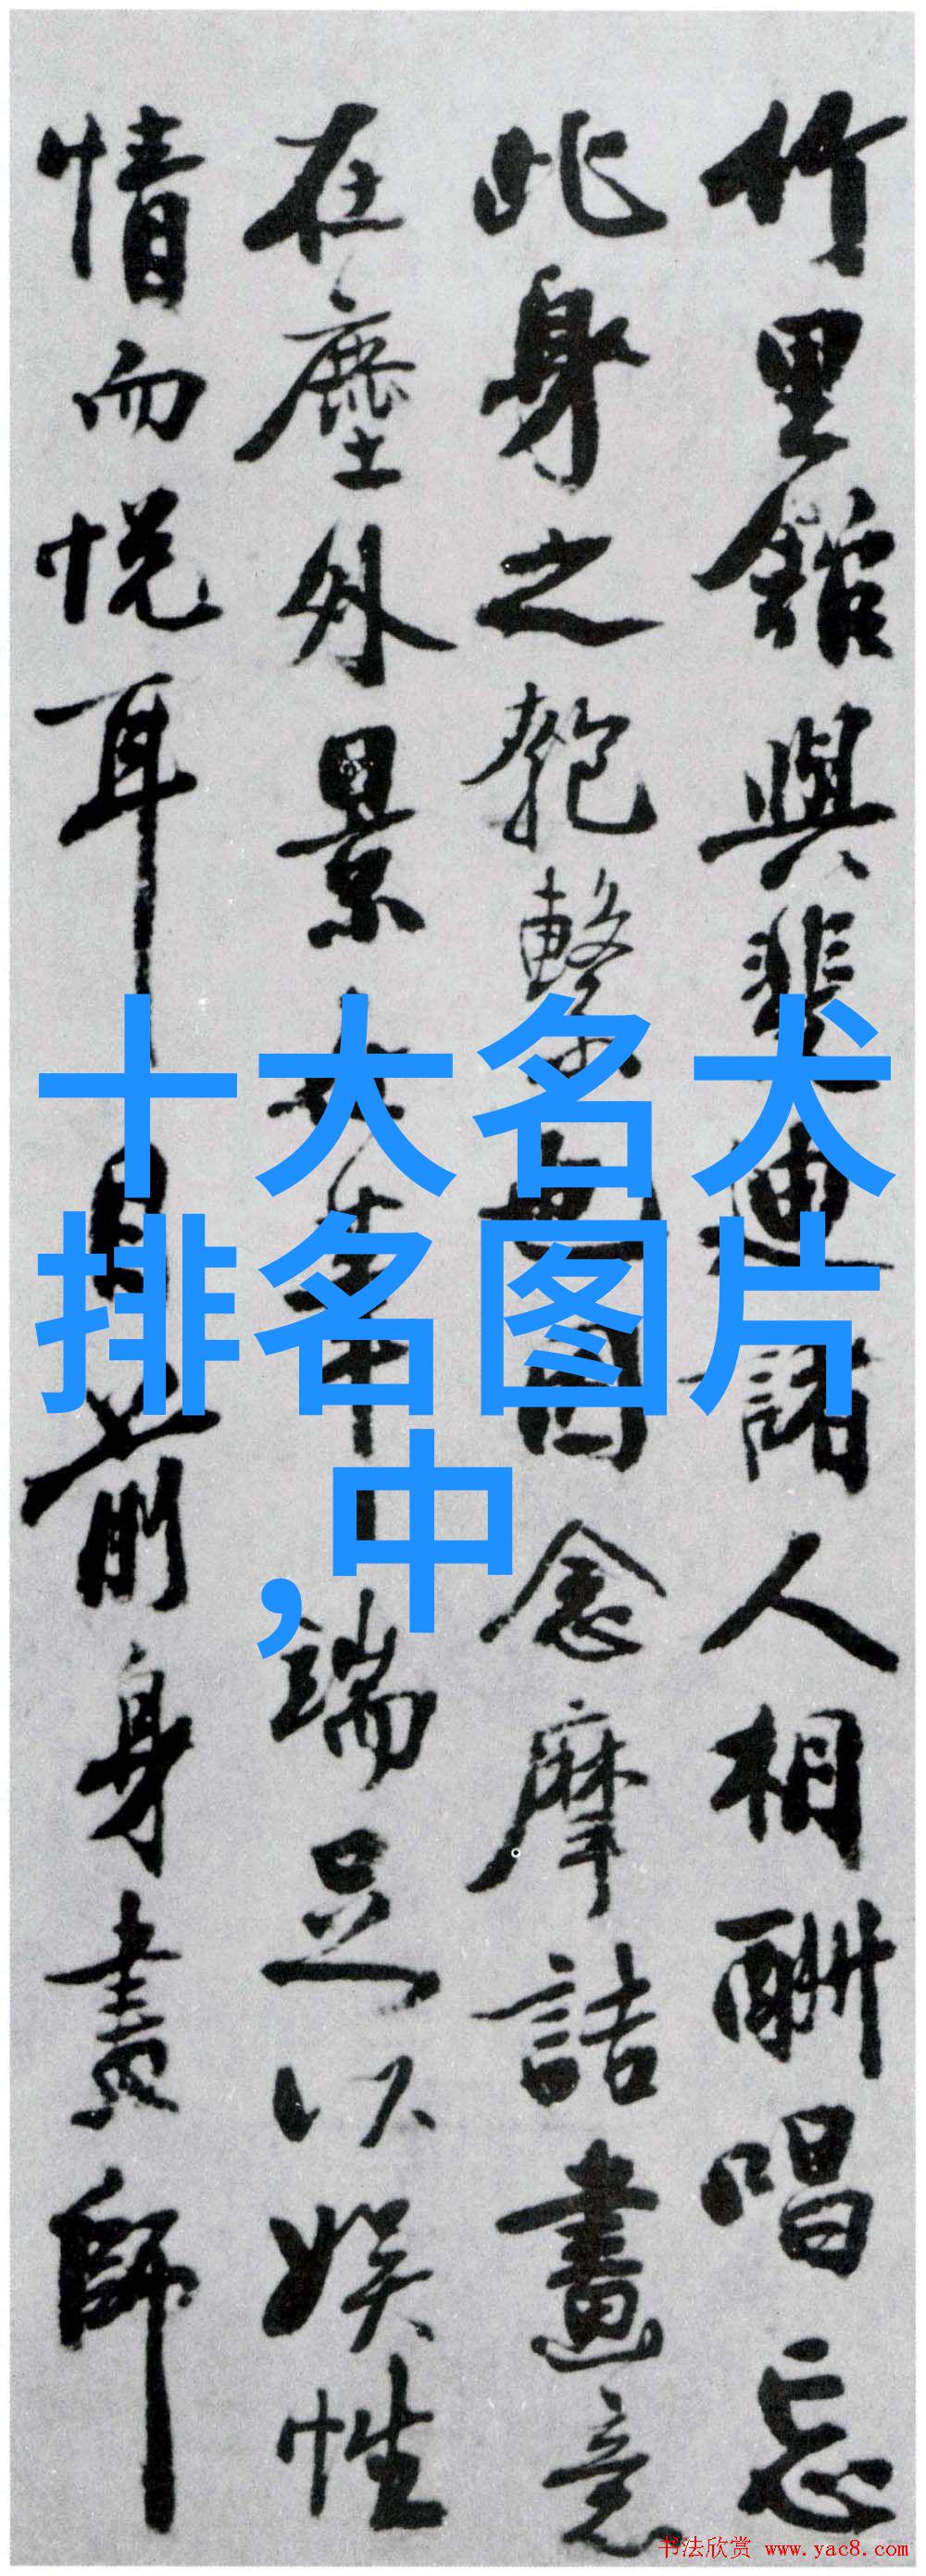 竹里館與裴迪諸人相酬唱忘
此身之匏繫也因念摩詰畫意
在塵外景筆端足以娛性
情而悅耳目前身畫師
十大名犬
排名图片
,中
书法欣赏 www.yac8.com